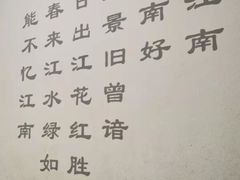 江南
南好
景旧曾谙
日出江花红胜
春来江水绿如
能不忆江南